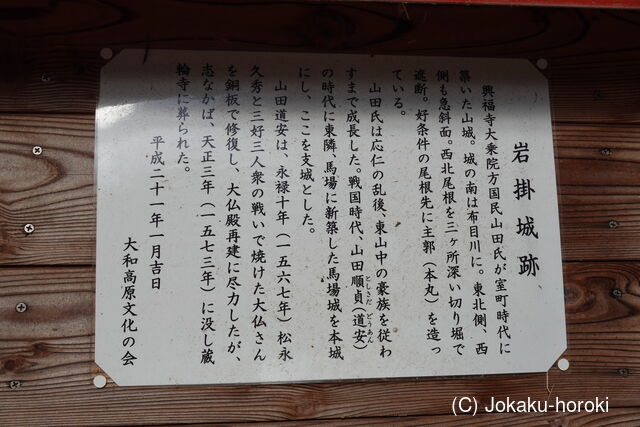 岩掛城跡
興福寺大乗院方国民山田氏が室町時代に
築いた山城。城の南は布目川に。東北側、西
側も急斜面。西北尾根を三ヶ所深い切り堀で
遮断。好条件の尾根先に主郭(本丸)を造っ
ている。
山田氏は応仁の乱後、東山中の豪族を従わ
すまで成長した。戦国時代、山田順貞(道安)
としさだ どうあん
の時代に東隣、馬場に新築した馬場城を本城
にし、ここを支城とした。
山田道安は、永禄十年(一五六七年)松永
久秀と三好三人衆の戦いで焼けた大仏さん
を銅板で修復し、大仏殿再建に尽力したが、
志なかば、天正三年(一五七三年)に没し蔵
輪寺に葬られた。
平成二十一年一月吉日
大和高原文化の会
(C) Jokaku-horoki